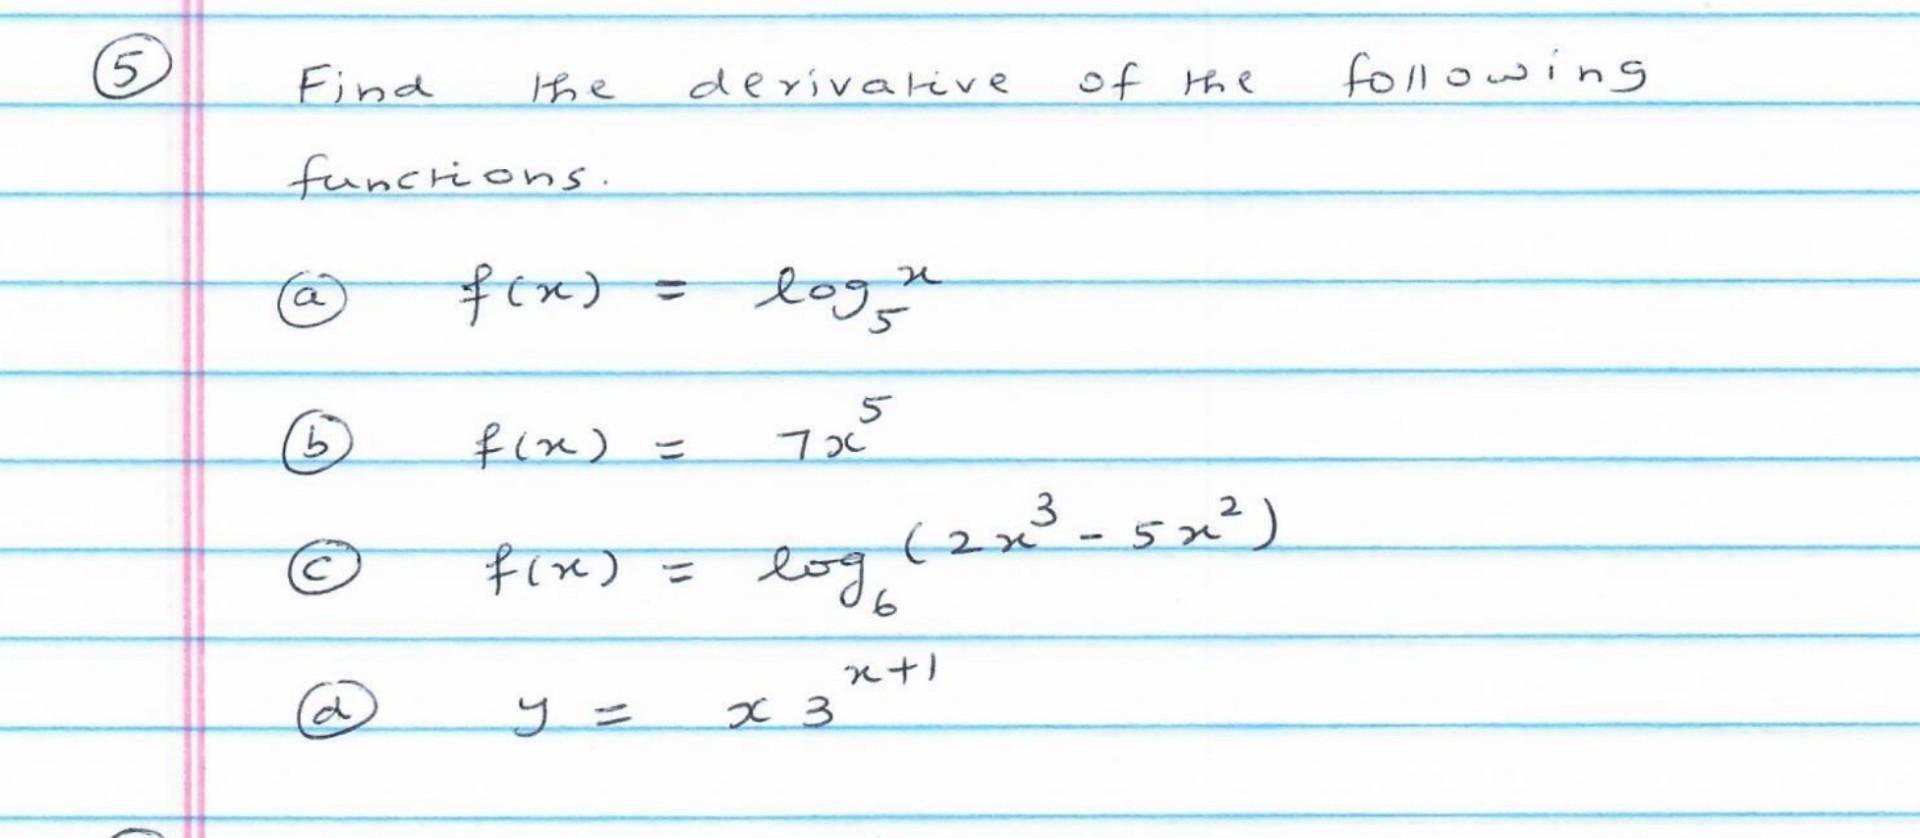 5 Find the derivative of the following
functions.
a f(x) = log₅ˣ
b f(x) = 7x⁵
c f(x) = log₆(2x³ - 5x²)
d y = x 3ˣ⁺¹